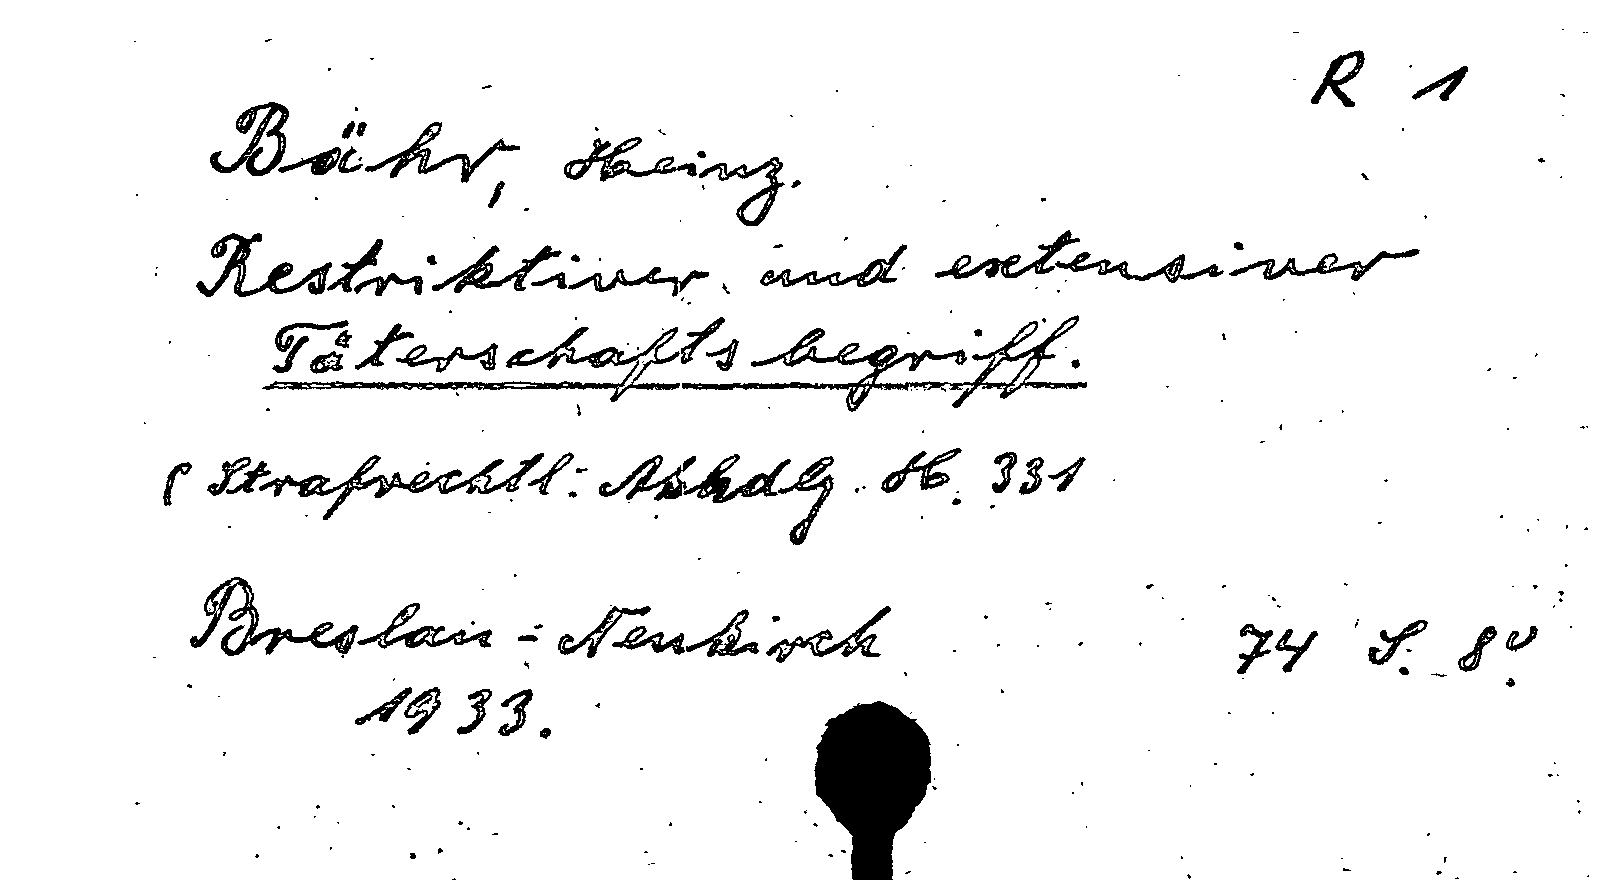 R 1
Bähr, Heinz.
Restriktiver und extensiver
Täterschaftsbegriff.
( Strafrechtl. Abhdlg. H. 331
Breslau-Neukirch 74 S. 8º.
1933.